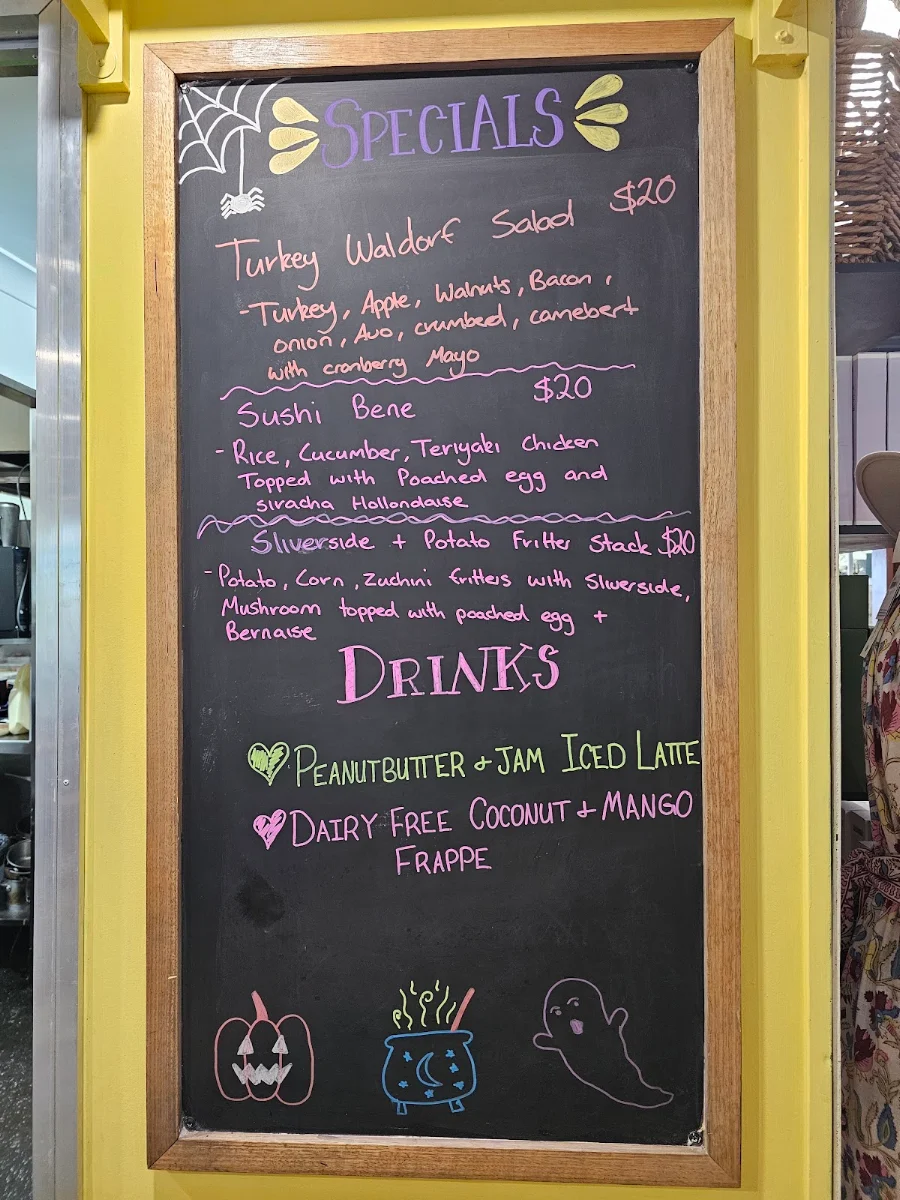 SPECIALS
Turkey Waldorf Salad $20
-Turkey, Apple, Walnuts, Bacon,
onion, Avo, crumbed, camebert
with cranberry Mayo
Sushi Bene $20
- Rice, Cucumber, Teriyaki Chicken
Topped with Poached egg and
siracha Hollondaise
Sliverside + Potato Fritter Stack $20
- Potato, Corn, Zuchini fritters with Sliverside,
Mushroom topped with poached egg +
Bernaise
DRINKS
PEANUTBUTTER & JAM ICED LATTE
DAIRY FREE COCONUT & MANGO
FRAPPE